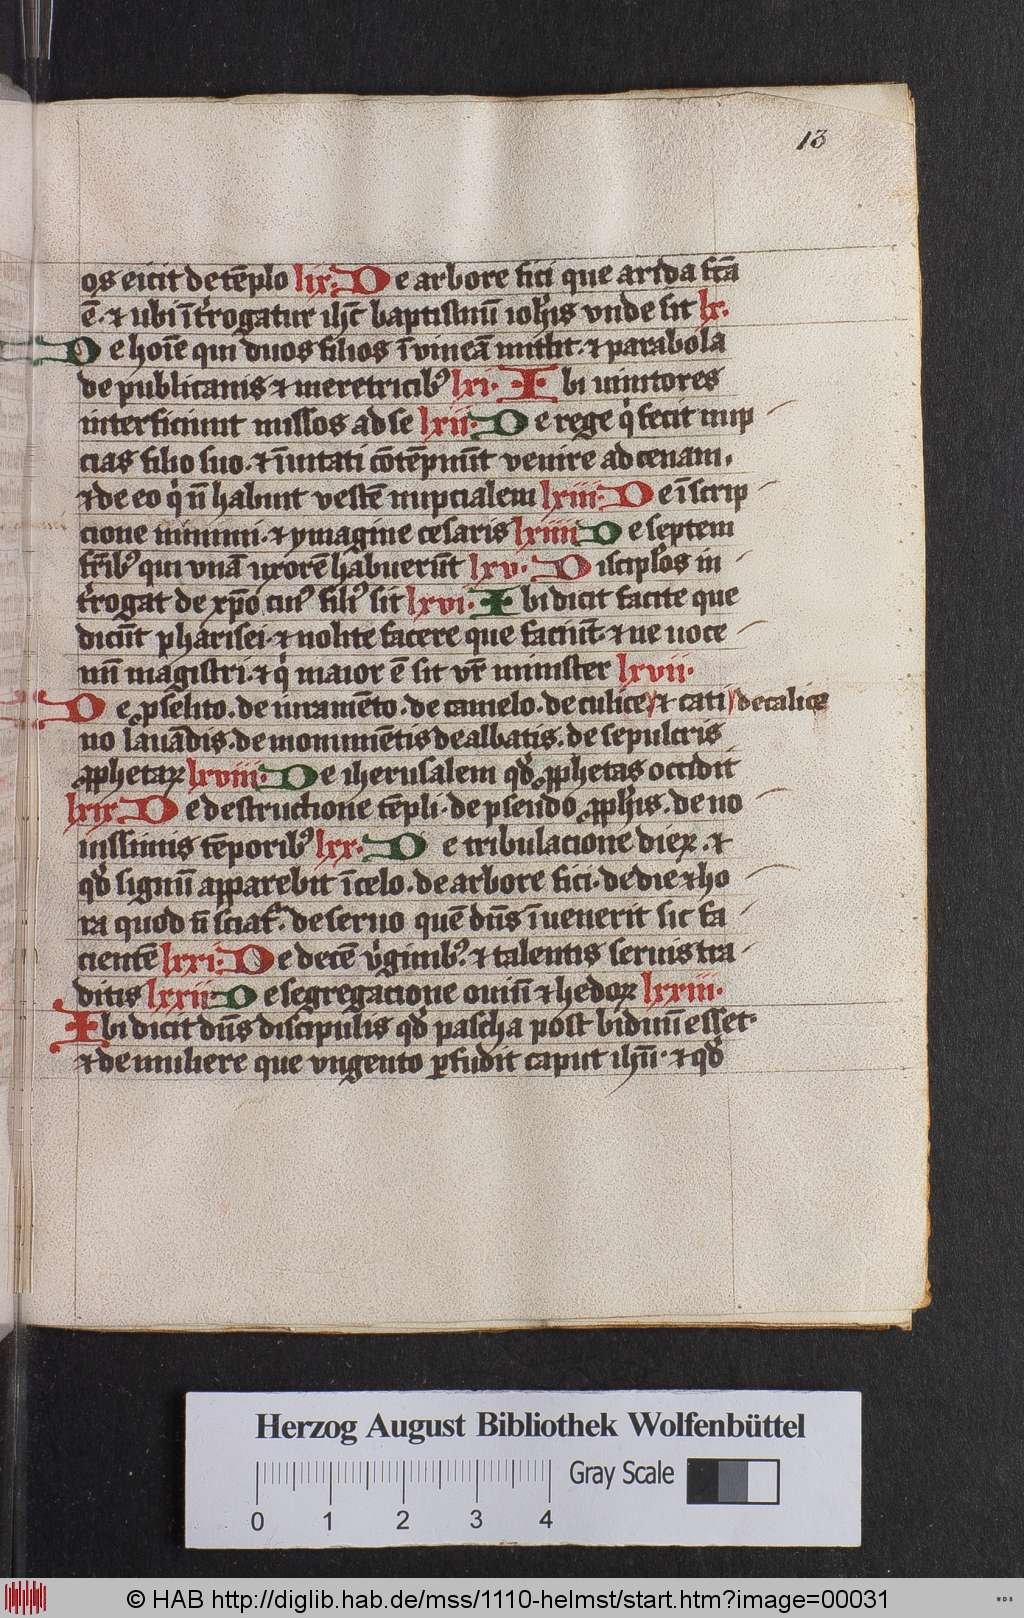 13
os eicit de tēplo lix. De arbore fici que arida fcā
ē. ⁊ ubi īt᷑rogatur ihc̄ baptismū ioh̄is vnde sit lx.
De hoīe qui duos filios ī vineā mittit. ⁊ parabola
de publicanis ⁊ meretricibꝰ lxi. Ibi vinitores
interficiunt missos ad se lxii. De rege qͥ fecit nup
cias filio suo. ⁊ īuitati cōtēpnūt venire ad cenam.
⁊ de eo qͥ n̄ habunt vestē nupcialem lxiii. De īscrip
cione nūmmi. ⁊ ymagine cesaris lxiiii De septem
fr̄ibꝰ qui vnā uxorē habuerūt lxv. Discip̄los in
t᷑rogat de xp̄o cuiꝰ filiꝰ sit lxvi. Ibi dicit facite que
dicūt pharisei. ⁊ nolite facere que faciūt. ⁊ ne uoce
mī magistri. ⁊ qͥ maior ē sit vr̄ minister lxvii.
De ꝓselito. de iuramēto. de camelo. de culice ⁊ cati de calice
no lauādis. de monumētis dealbatis. de sepulcris
ꝓphetaꝝ lxviii. De iherusalem qd̄ ꝓphetas occidit
lxix De destructione tēpli. de pseudo ꝓph̄is. de no
uissimis tēporibꝰ lxx. De tribulacione dieꝝ. ⁊
qd̄ signū apparebit ī celo. de arbore fici. de die ⁊ ho
ra quod n̄ sciat᷑. de seruo quē dn̄s īuenerit sic fa
cientē lxxi. De decē vͥginibꝰ. ⁊ talentis seruis tra
ditis lxxii De segregacione ouiū ⁊ hedoꝝ lxxiii.
Ibi dicit dn̄s discipulis qd̄ pascha post biduū esset.
⁊ de muliere que vngento ꝑfudit caput ihū. ⁊ qd̄
Herzog August Bibliothek Wolfenbüttel
Gray Scale
0 1 2 3 4
© HAB http://diglib.hab.de/mss/1110-helmst/start.htm?image=00031